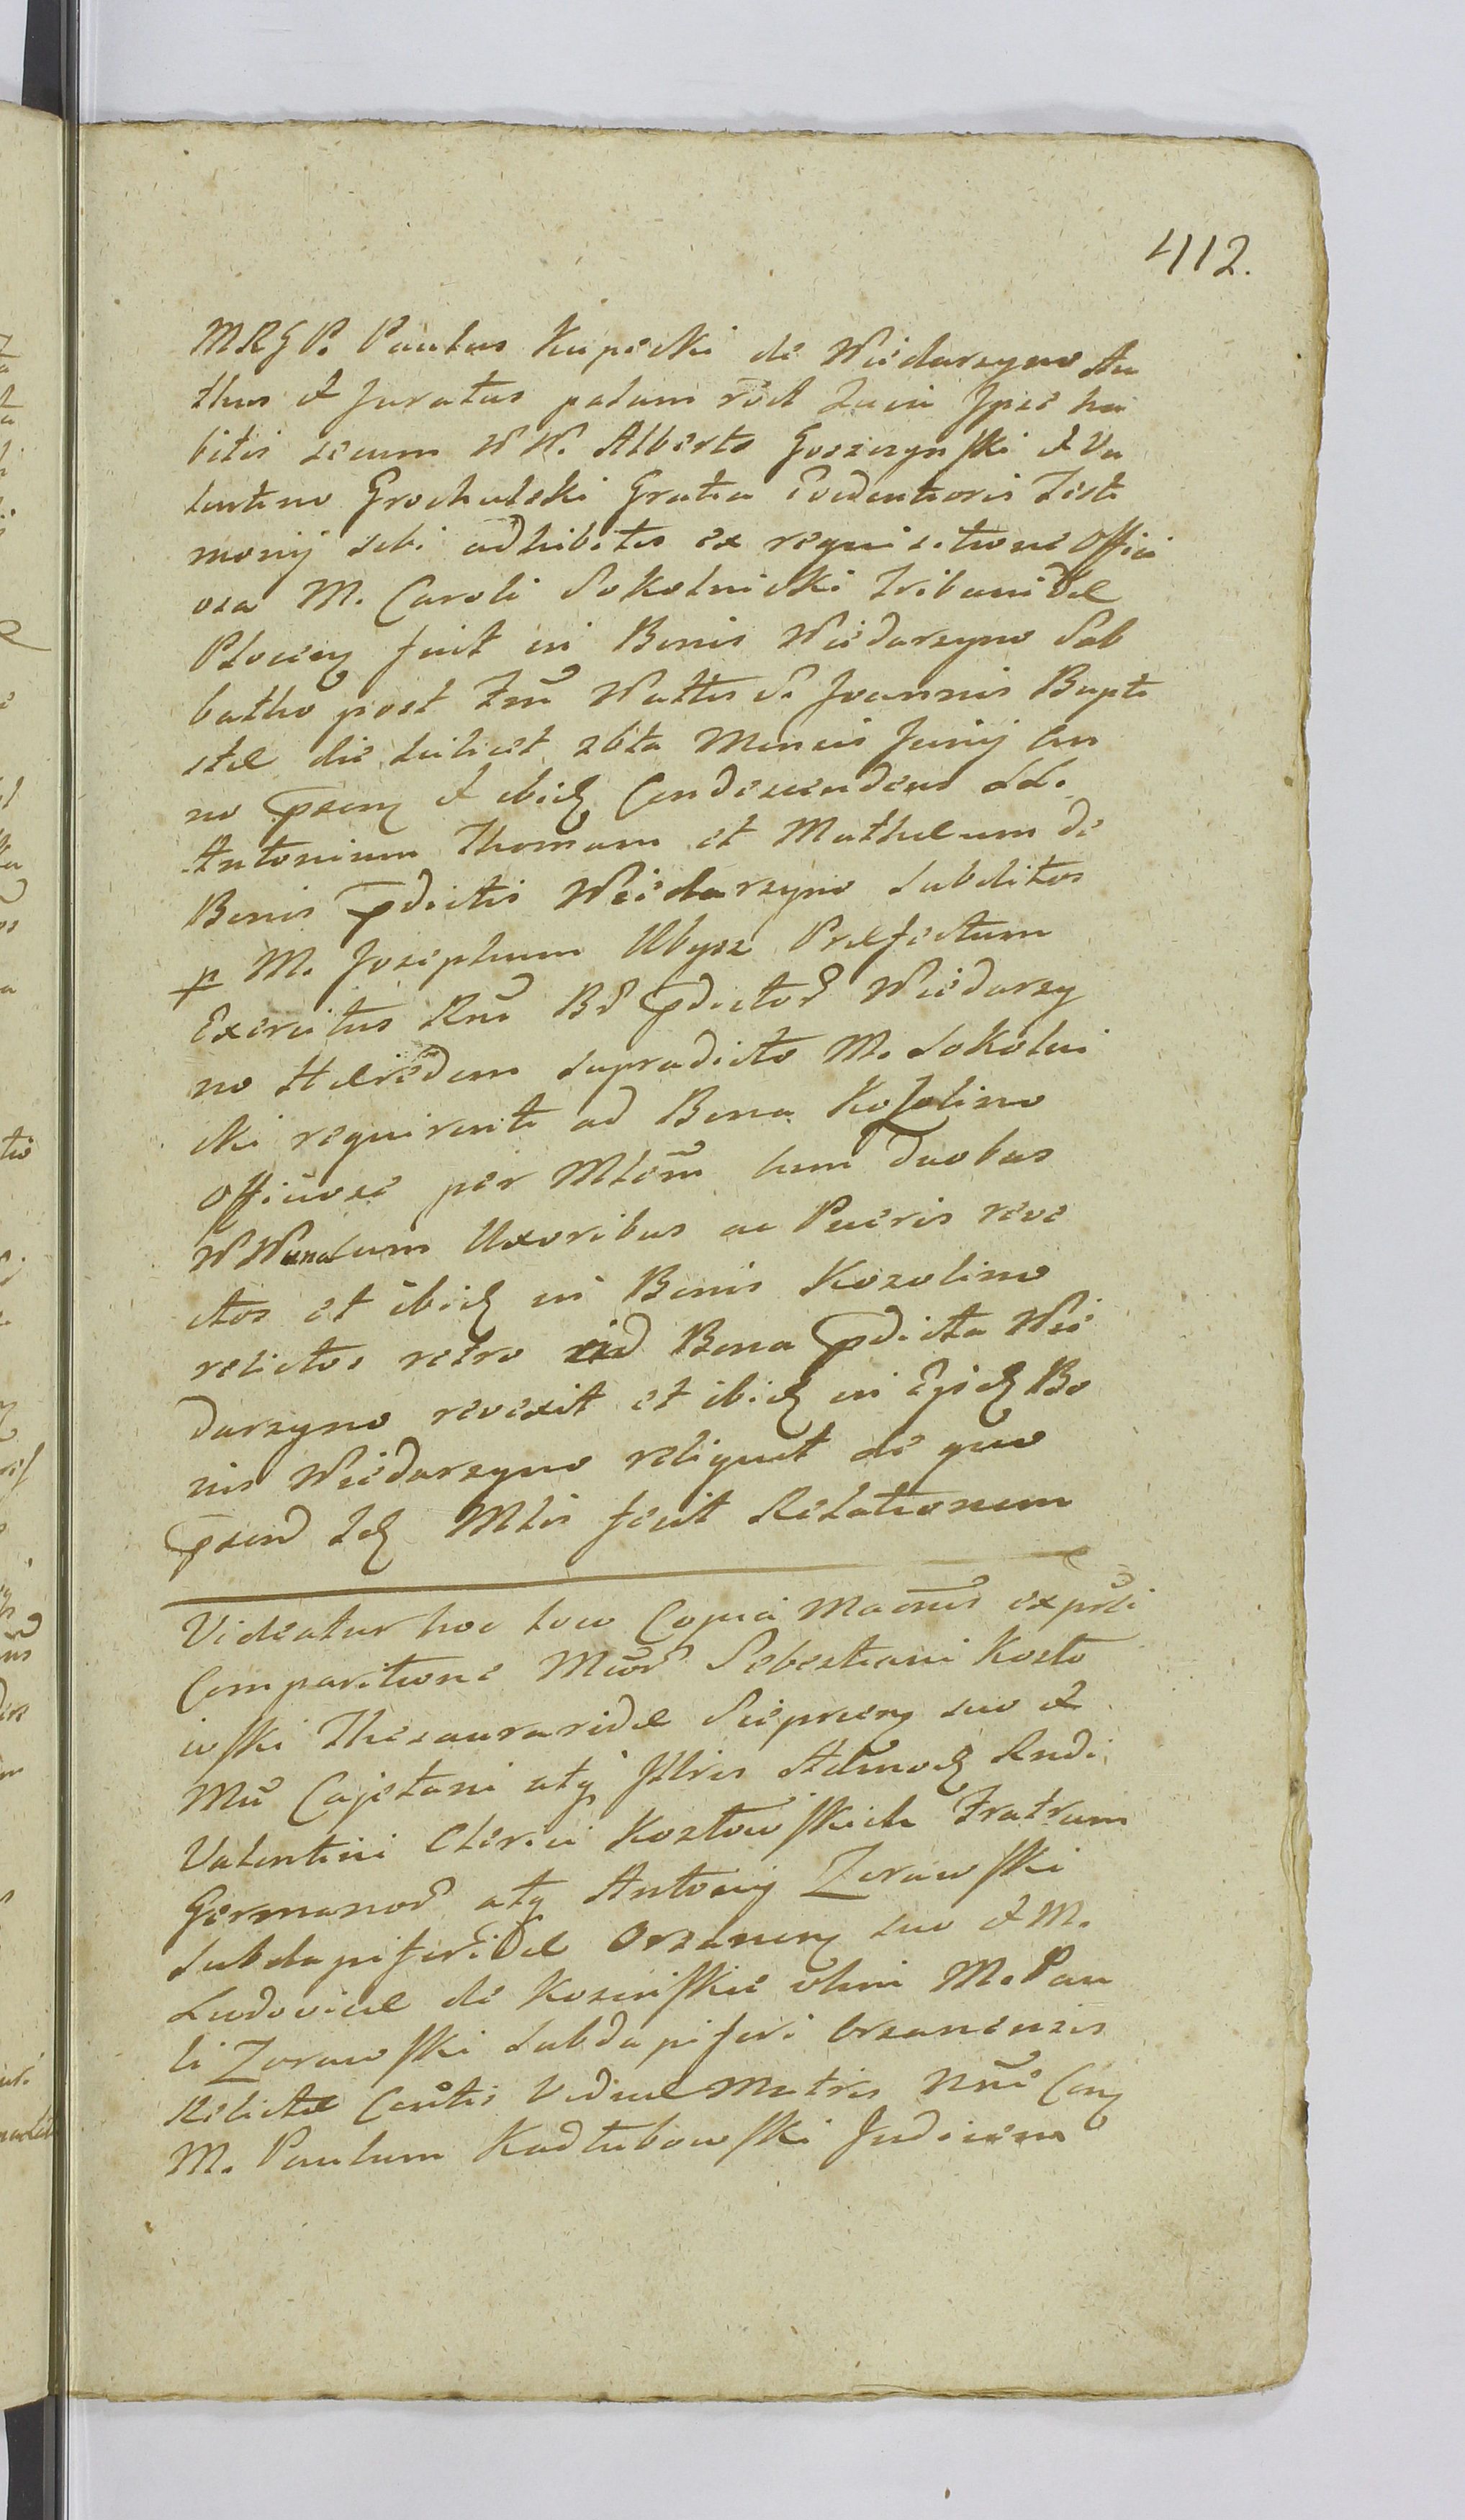 412.
MRGP. Paulus Kupecki de Wiedarzyno Au
thus et Juratus palam rēct Quia Ipse ha
bitis secum WW. Alberto Goszczynski et Va
lentino Grochulski Gratia Evidentioris Testi
monij sibi adhibitis ex requisitione Offici
osa M. Caroli Sokolnicki Tribunidae
Plocen fuit in Bonis Wiedarzyno Sab
batho post Fm̄ Nattis S. Joannis Bapti
stae die scilicet 26ta Mensis Junij An
no p̄sen et ibid Condescendens LL.
Antonium Thomam et Mathaeum de
Bonis p̄dictis Wiedarzyno Subditos
p M. Josephum Ubysz Praefectum
Exercitus Rni Bd p̄dictor Wiedarzy
no Haeredem supradicto M. Sokolni
cki requirenti ad Bona Kozolino
Officiose per Mlem̄ cum duobus
WWundum Uxoribus ac Pueris reve
ctos et ibid in Bonis Kozolino
relictos retro ad Bona p̄dicta Wie
darzyno revexit et ibid in Ejsd Bo
nis Wiedarzyno reliquit de quo
p̄send Id Mlis fecit Relationem
Videatur hoc loco Copia Macnis ex psli
Comparitione Mcor Sebestiani Kozlo
wski Thesauraridae Sieprcen suo et
Mci Cajetani atq Illris Admod Rndi
Valentini Clerici Kozlowskich Fratrum
Germanor atq Antonij Zorawski
Subdapiferidae Orzanen suo et M.
Ludovicae de Kosinskie olim M. Pau
li Zorawski Subdapiferi Orzanensis
Relictae Contis Viduae Matris Nne Con
M. Paulum Kadlubowski Judicem